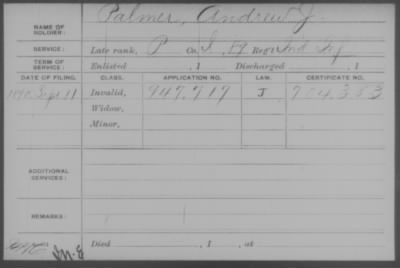 NAME OF SOLDIER: Palmer, Andrew J
SERVICE: Late rank, P Co. I, 89 Reg't Ind Inf
TERM OF SERVICE: Enlisted , 1 Discharged , 1
DATE OF FILING. CLASS. APPLICATION NO. LAW. CERTIFICATE NO.
1890 Sept 11 Invalid, 947.717 J 704.353
Widow,
Minor,
ADDITIONAL SERVICES:
REMARKS:
Died , 1 , at